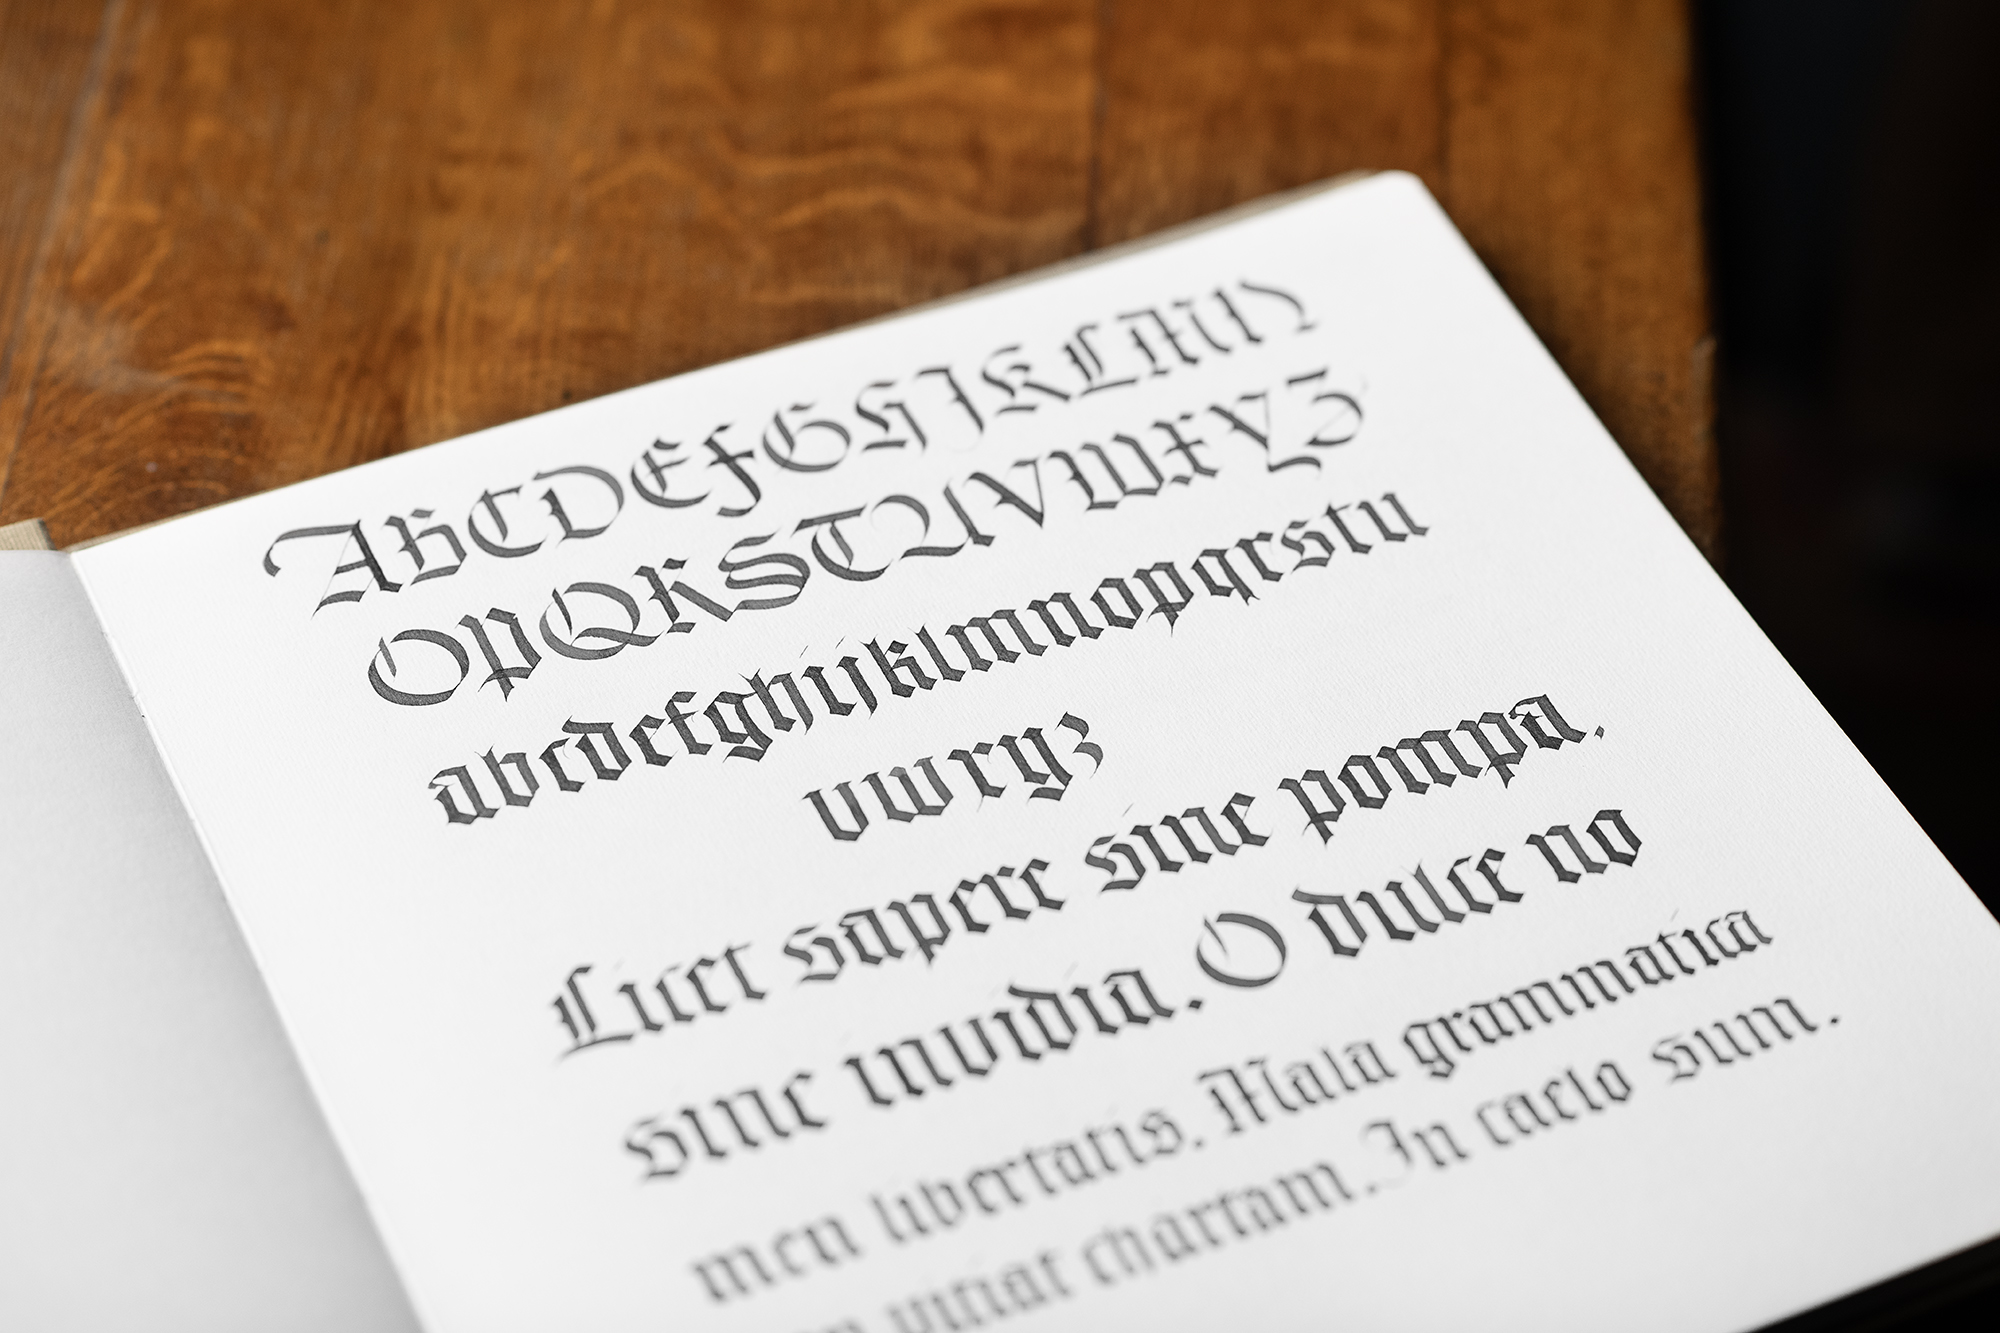 ABCDEFGHIJKLMN
OPQRSTUVWXYZ
abcdefghijklmnopqrstu
vwxyz
Licet sapere sine pompa.
sine invidia. O dulce no
men libertatis. Mala grammatica
non vitiat chartam. In caelo sum.